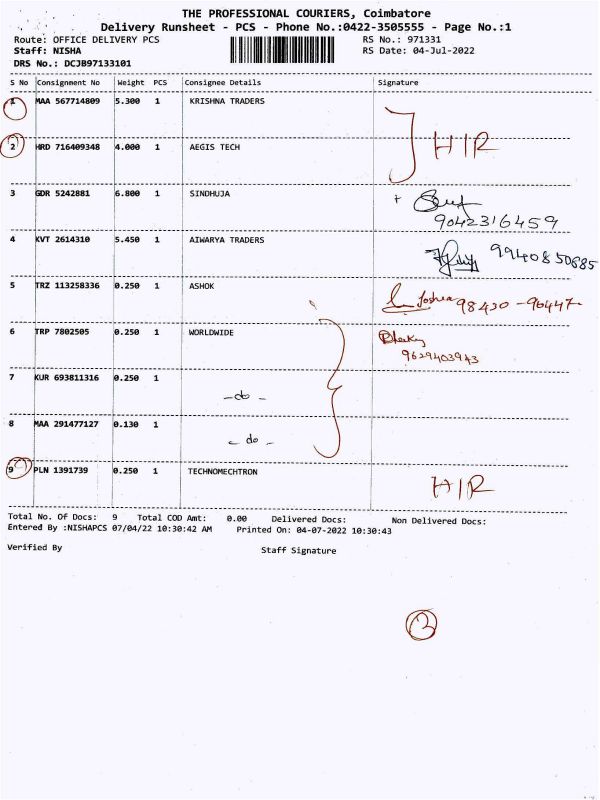 THE PROFESSIONAL COURIERS, Coimbatore
Delivery Runsheet - PCS - Phone No.:0422-3505555 - Page No.:1
Route: OFFICE DELIVERY PCS RS No.: 971331
Staff: NISHA RS Date: 04-Jul-2022
DRS No.: DCJB97133101
S No Consignment No Weight PCS Consignee Details Signature
1 MAA 567714809 5.300 1 KRISHNA TRADERS
2 HRD 716409348 4.000 1 AEGIS TECH H/R
3 GDR 5242881 6.800 1 SINDHUJA
9042316459
4 KVT 2614310 5.450 1 AIWARYA TRADERS
9940850685
5 TRZ 113258336 0.250 1 ASHOK
Joshua 98430-96447
6 TRP 7802505 0.250 1 WORLDWIDE
9629403943
7 KUR 693811316 0.250 1
-do-
8 MAA 291477127 0.130 1
- do -
9 PLN 1391739 0.250 1 TECHNOMECHTRON
H/R
Total No. Of Docs: 9 Total COD Amt: 0.00 Delivered Docs: Non Delivered Docs:
Entered By :NISHAPCS 07/04/22 10:30:42 AM Printed On: 04-07-2022 10:30:43
Verified By Staff Signature